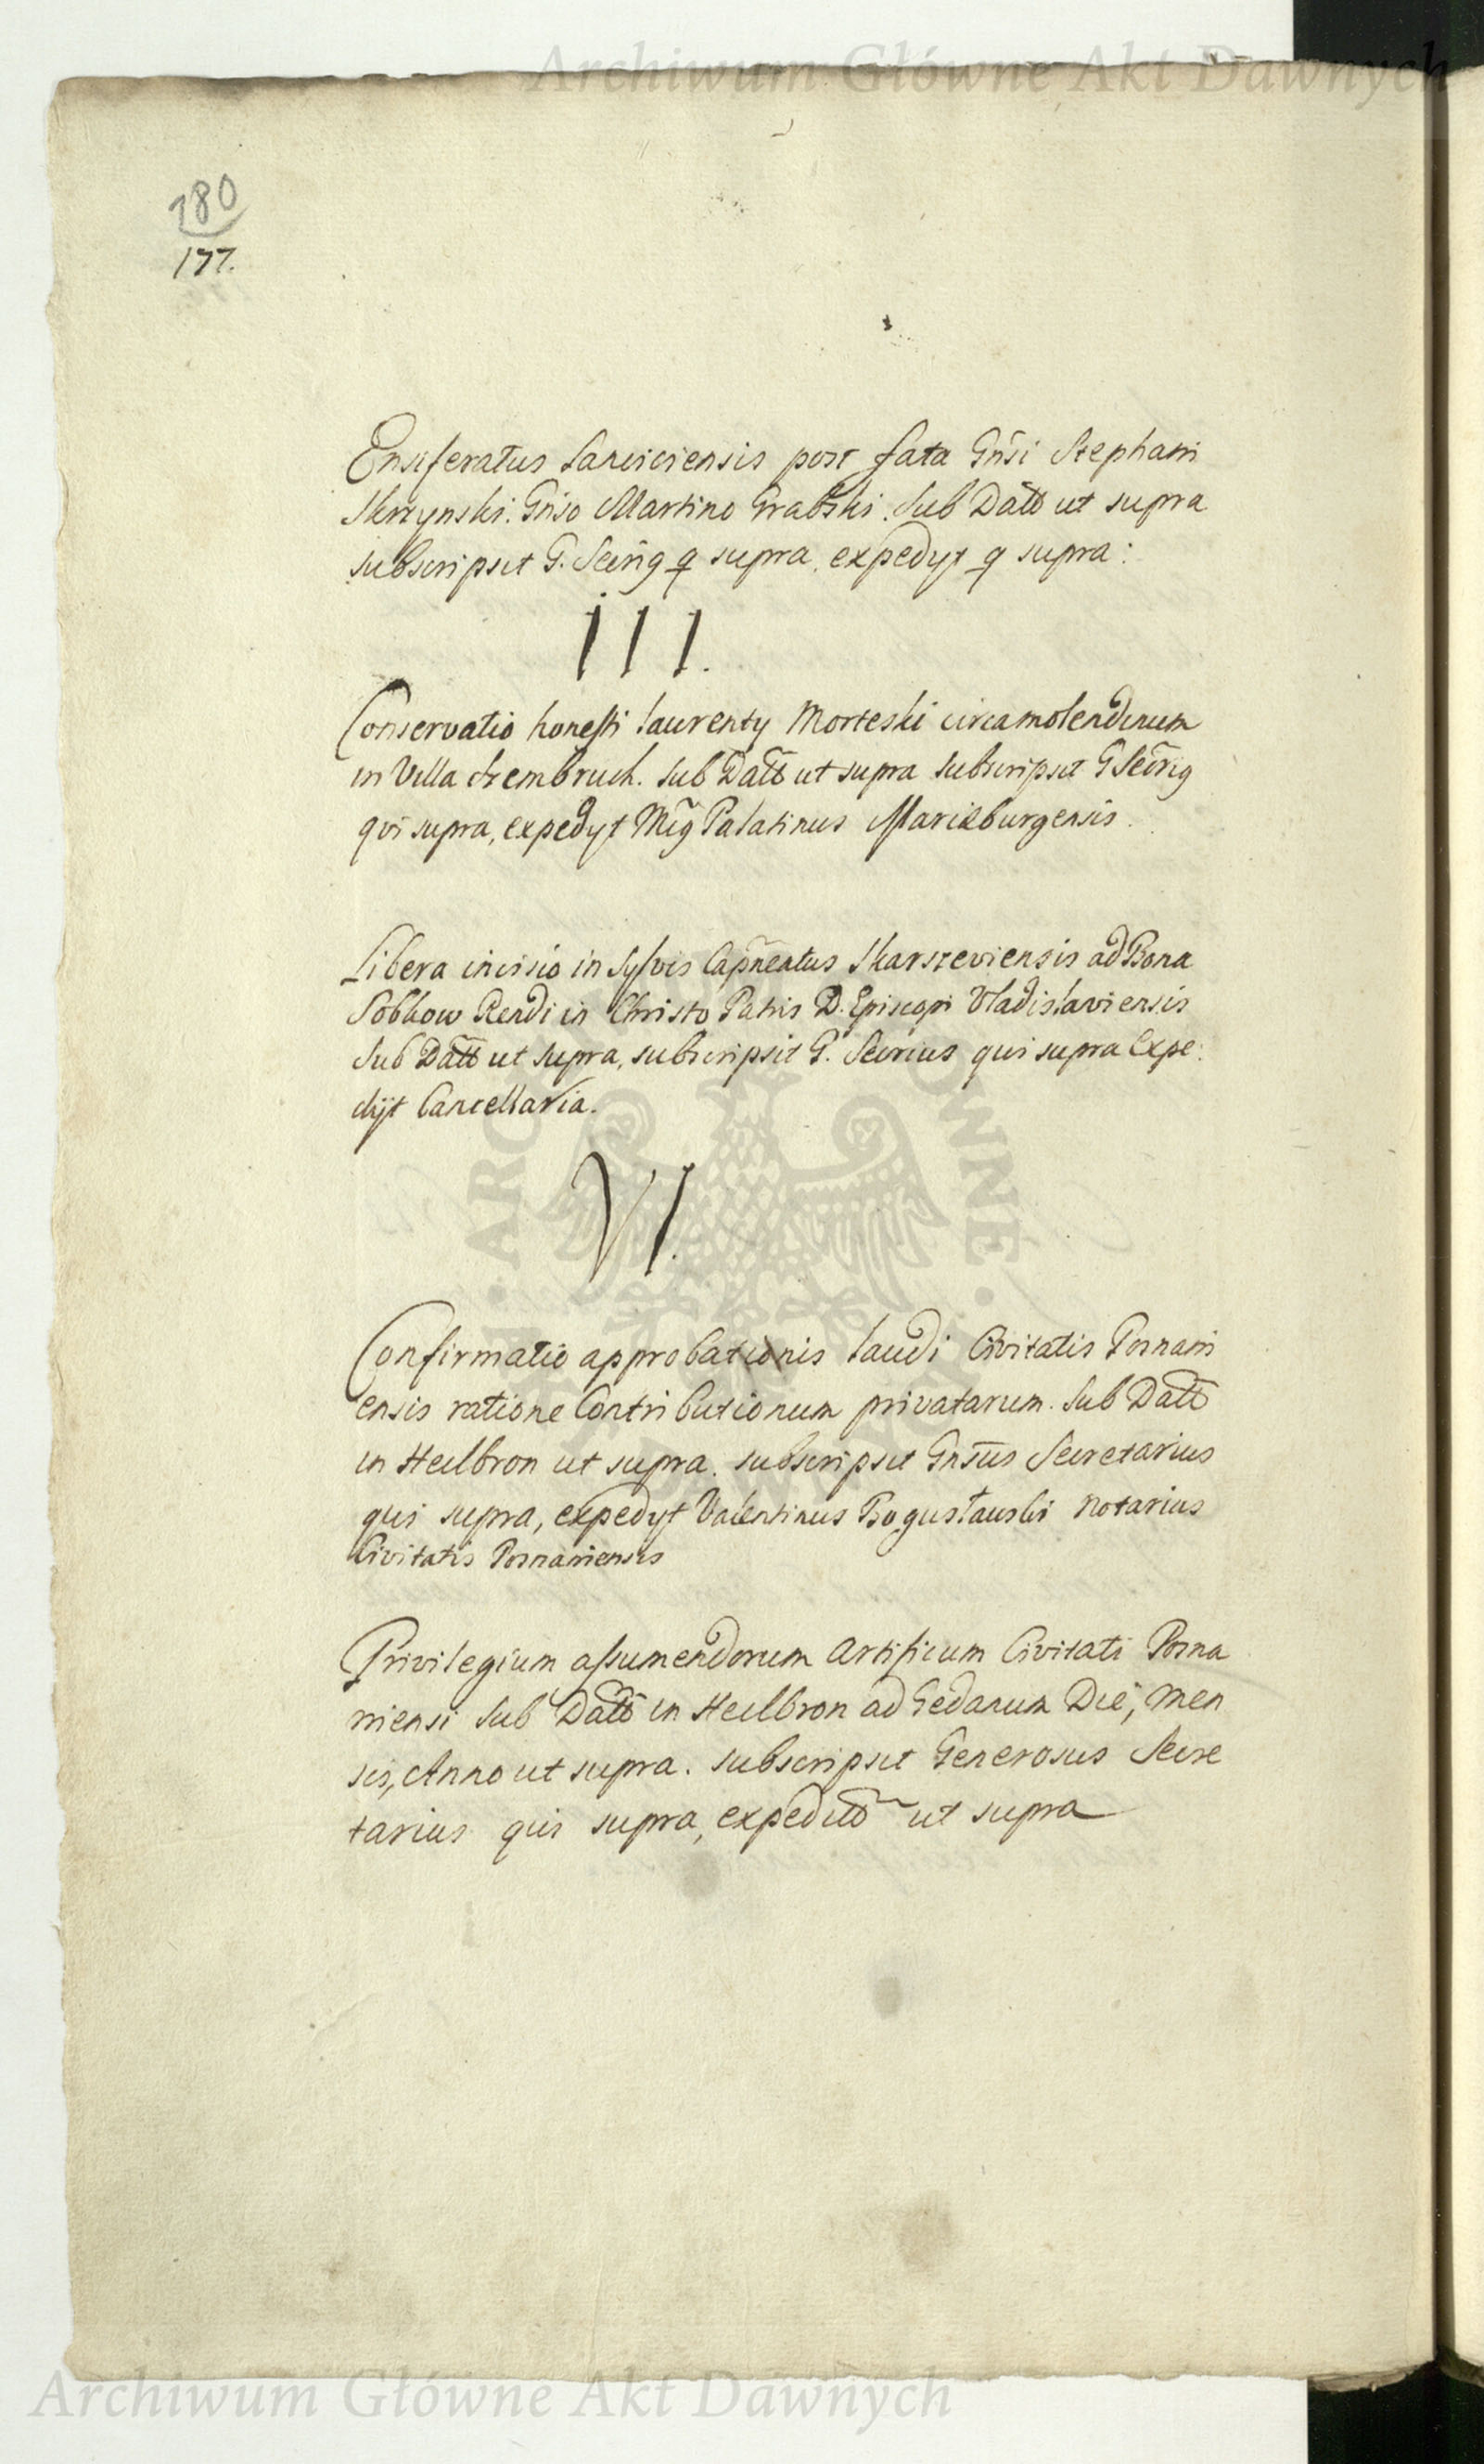 Archiwum Główne Akt Dawnych
180
177.
Ensiferatus Lanciciensis post fata Gn̄si Stephani
Skrzynski. Gn̄so Martino Grabski. Sub Datt ut supra
subscripsit G. Secrīg q supra, expedyt q supra:
III.
Conservatio honesti Laurenty Morteski circa molendinum
in Villa Czembruch. Sub Datt ut supra subscripsit G Secrīg
qui supra, expedyt Mīg Palatinus Mariæburgensis.
Libera incisio in Sylvis Capn̄eatus Skarszeviensis ad Bona
Sobkow Rendi in Christo Patris D. Episcopi Vladislaviensis
Sub Datt ut supra, subscripsit G. Secrius qui supra Expe:
dijt Cancellaria.
VI.
Confirmatio approbationis laudi Civitatis Posnani
ensis ratione Contributionum privatarum. Sub Datt
in Heilbron ut supra. subscripsit Gn̄sus Secretarius
qui supra, expedyt Valentinus Bogusławski Notarius
Civitatis Posnaniensis
Privilegium assumendorum Artificum Civitati Posna
niensi Sub Datt in Heilbron ad Gedanum Die, Men
sis, Anno ut supra. subscripsit Generosus Secre
tarius qui supra, expeditt ut supra
Archiwum Główne Akt Dawnych